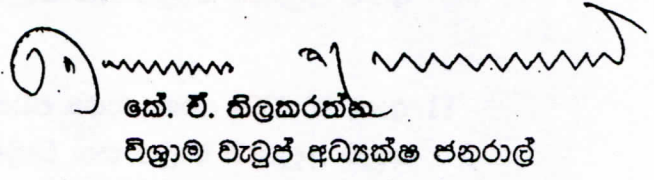 කේ. ඒ. තිලකරත්න
විශ්‍රාම වැටුප් අධ්‍යක්ෂ ජනරාල්